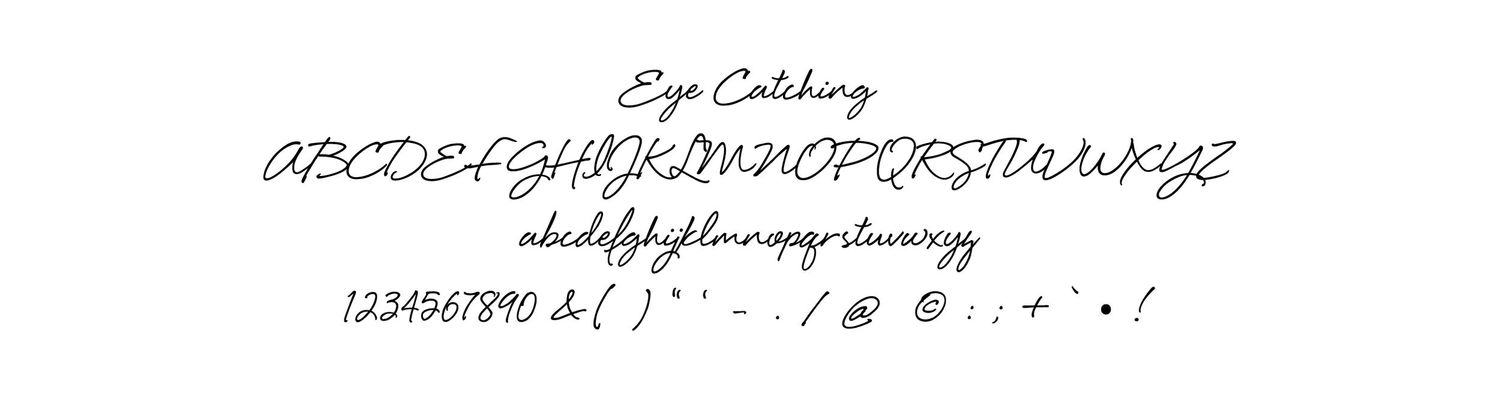 Eye Catching
ABCDEFGHIJKLMNOPQRSTUVWXYZ
abcdefghijklmnopqrstuvwxyz
1234567890 &( ) “ ‘ - . / @ © : ; + ` • !